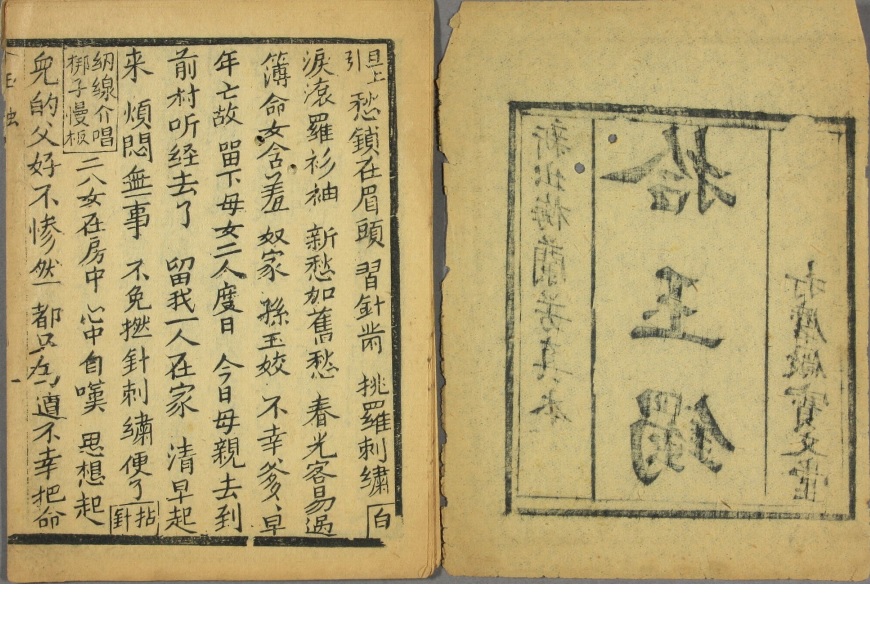 新出梅蘭芳真本
拾玉鐲
打磨廠寶文堂
旦上引 愁鎖在眉頭 習針黹 挑羅刺繡 白
淚滾羅衫袖 新愁加舊愁 春光容易過
簿命女含羞 奴家 孫玉姣 不幸爹〻早
年亡故 留下母女二人度日 今日母親去到
前村听经去了 留我一人在家 清早起
来 煩悶無事 不免撚針刺繡便了 拈針
納線介唱 梆子慢板 二八女在房中 心中自嘆 思想起
兒的父好不慘然 都只為遭不幸把命